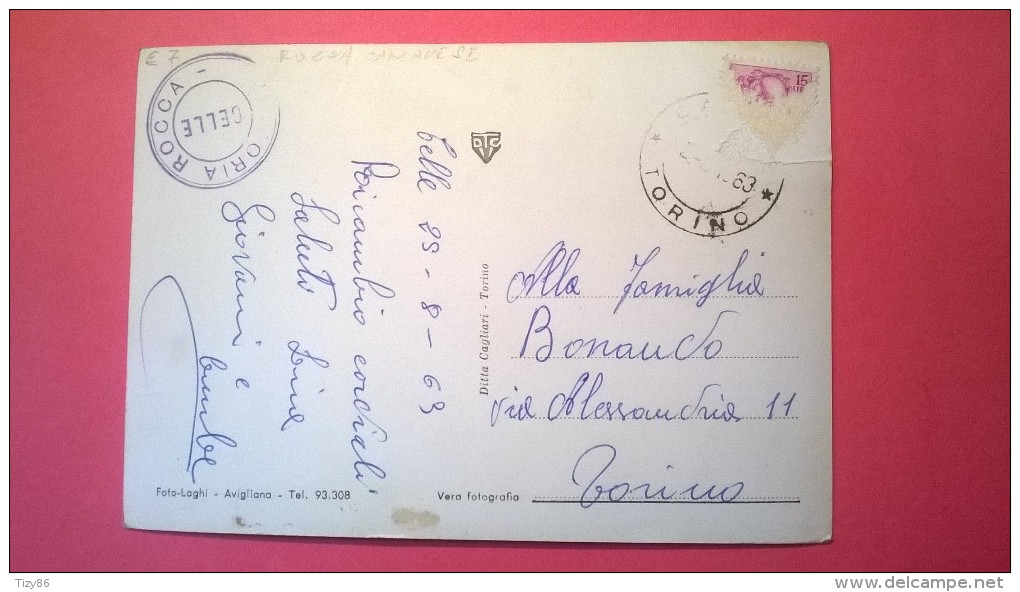 € 7
ROCCA CANAVESE
ORIA ROCCA -
CELLE
15
TORINO
63
DTC
Celle 25-8-63
Ricambio cordiali
Saluti Lina
Giovanni e
Ditta Cagliari - Torino
Alla Famiglia
Bonaudo
via Alessandria 11
Torino
Foto-Laghi - Avigliana - Tel. 93.308
Vera fotografia
Tizy86
www.delcampe.net